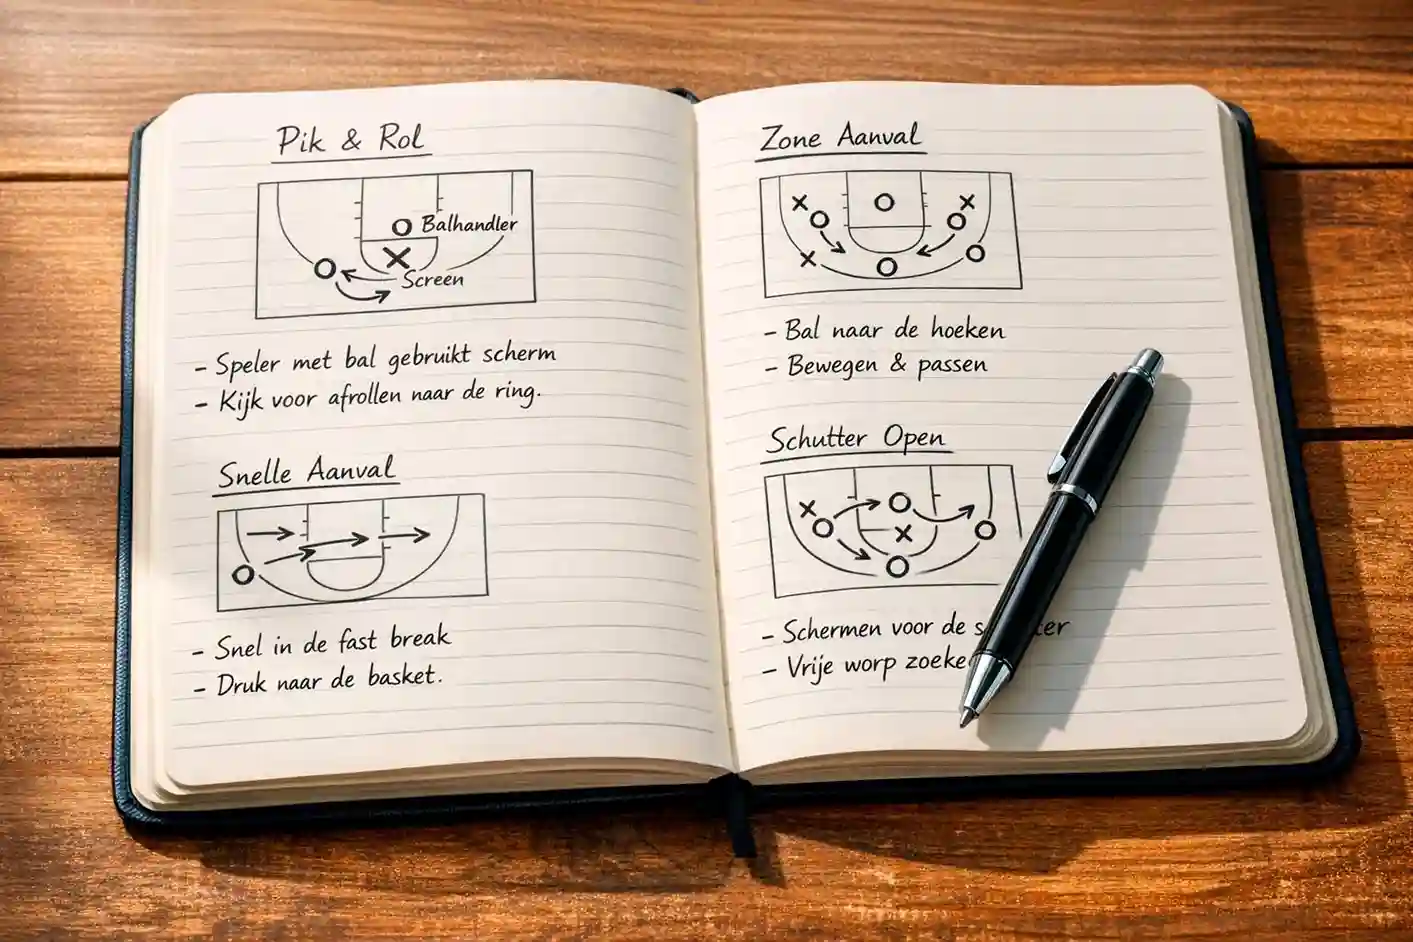 Pik & Rol
Balhandler
Screen
- Speler met bal gebruikt scherm
- Kijk voor afrollen naar de ring.
Snelle Aanval
- Snel in de fast break
- Druk naar de basket.
Zone Aanval
- Bal naar de hoeken
- Bewegen & passen
Schutter Open
- Schermen voor de
- Vrije worp